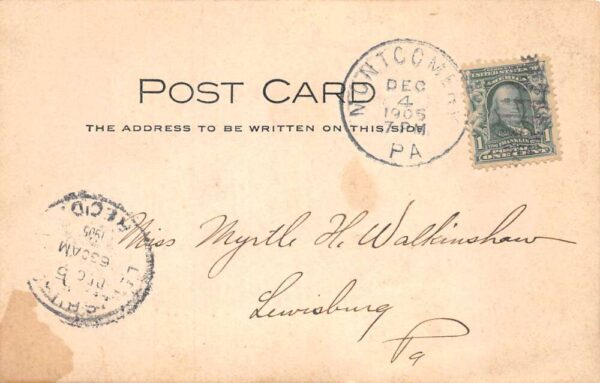 POST CARD
THE ADDRESS TO BE WRITTEN ON THIS SIDE
MONTGOMERY
DEC
4
1905
7 PM
PA
UNITED STATES
1
FRANKLIN
POSTAGE
ONE CENT
1
REC'D.
1905
630AM
DEC 5
LEWISBURG
Miss Myrtle H. Walkinshaw
Lewisburg
Pa